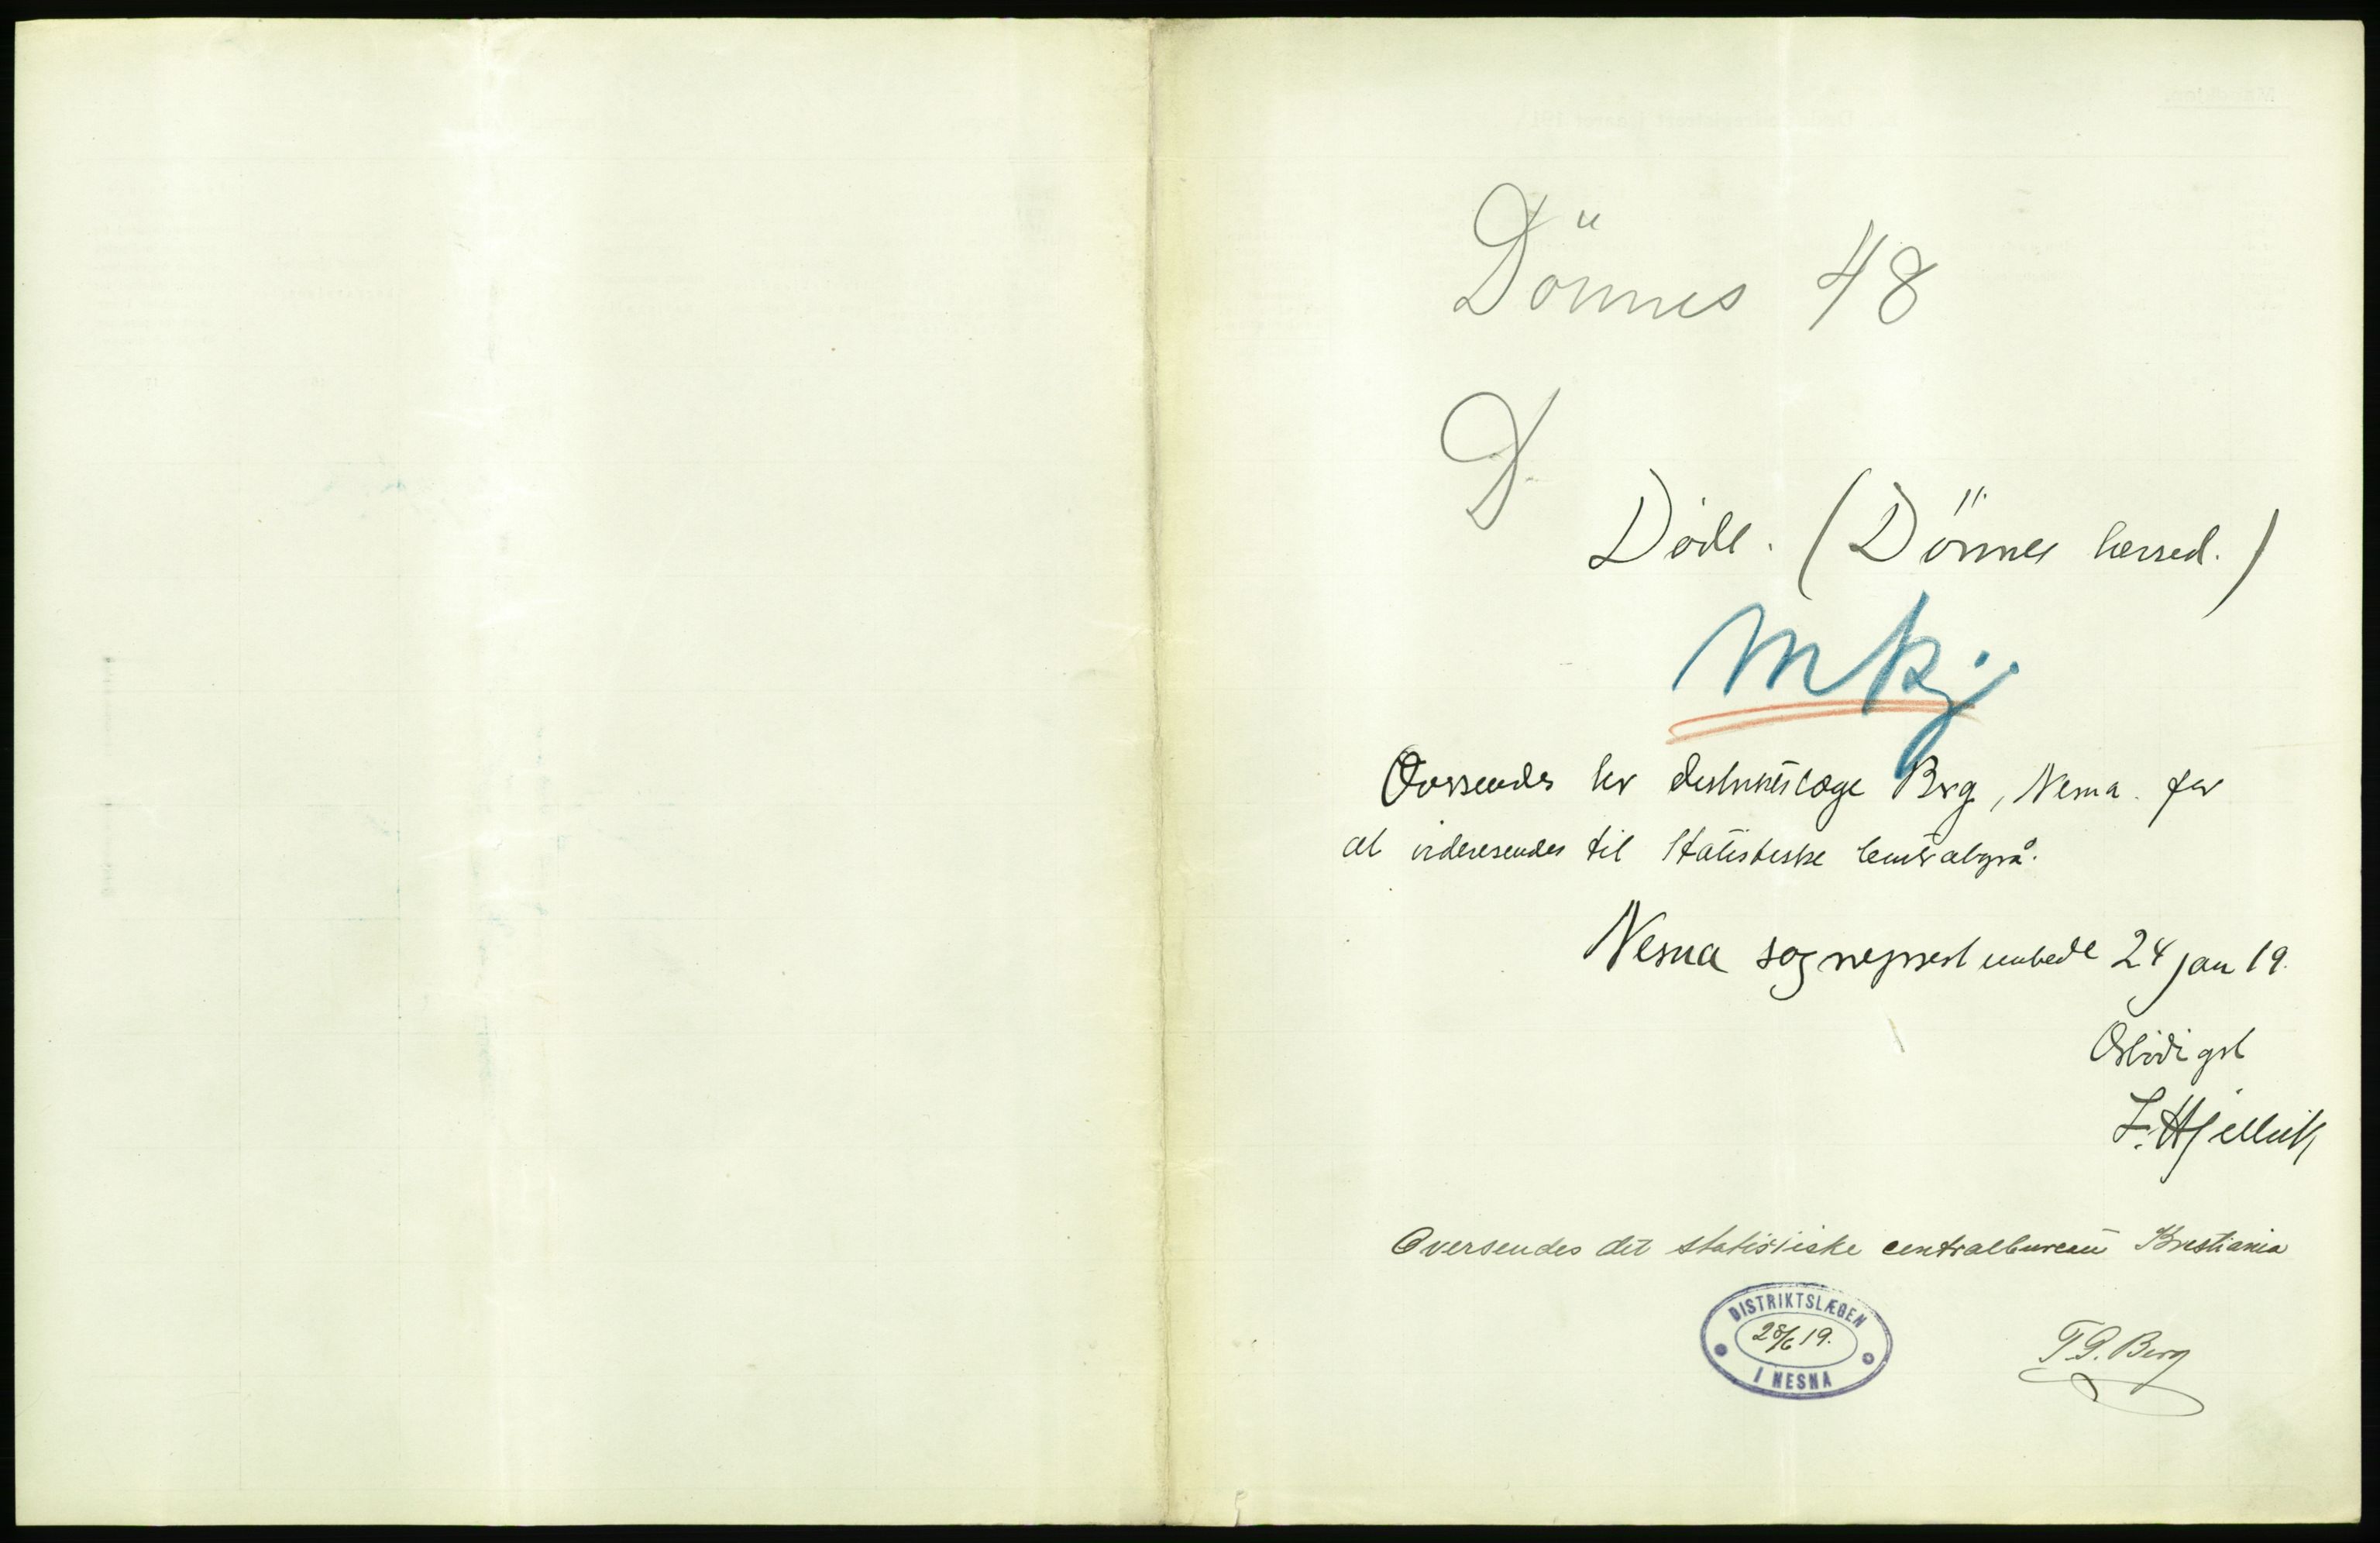 Dönnes 48
D.
Døde. (Dönnes herred.)
mkj.
Oversendes hr distriktslæge Berg, Nesna. for
at videresendes til Statistiske Centralbyrå.
Nesna sogneprestembede 24 jan 19.
Ærbødigst
Oversendes det statistiske centralbureau Kristiania
DISTRIKTSLÆGEN
28/6 19.
I NESNA
T. G. Berg